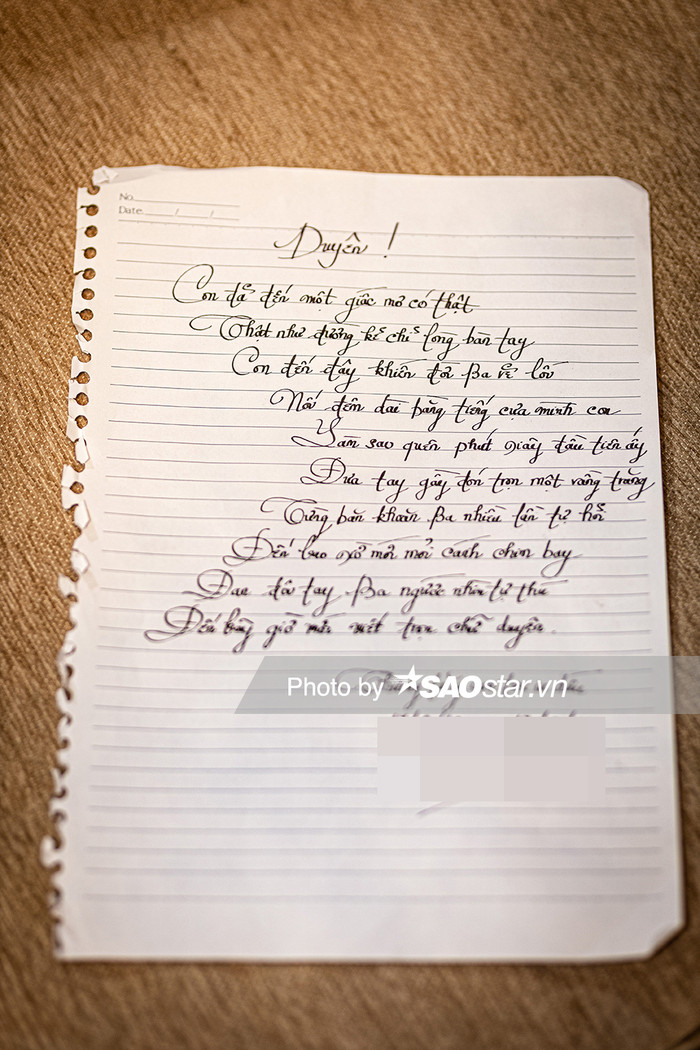 No.
Date. / /
Duyên !
Con đã đến một giấc mơ có thật
Thật như đường kẻ chỉ lòng bàn tay
Con đến đây khiến đời Ba rẽ lối
Nối đêm dài bằng tiếng của mình con
Làm sao quên phút giây đầu tiên ấy
Đưa tay gầy đón trọn một vầng trăng
Từng băn khoăn Ba nhiêu lần tự hỏi
Đến bao giờ mới mỏi cánh chim bay
Đan đôi tay Ba ngước nhìn tự thú
Đến bây giờ mới viết trọn chữ duyên.
Photo by SAOstar.vn